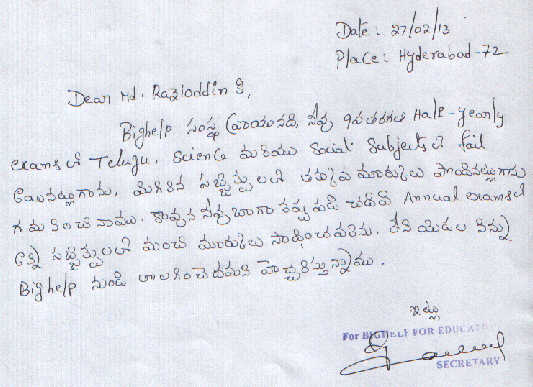 Date: 27/02/13
Place: Hyderabad-72
Dear Md. Razioddin G,
Bighelp సంస్థ వ్రాయునది, నీవు 9వ తరగతి Half-yearly
exams లో Telugu, Science మరియు Social Subjects లో fail
అయినట్లుగాను, మిగిలిన సబ్జెక్టులలో తక్కువ మార్కులు పొందినట్లుగాను
గమనించినాము. కావున నీవు బాగా కష్టపడి చదివి Annual exams లో
అన్ని సబ్జెక్టులలో మంచి మార్కులు సాధించవలెను. లేని యెడల నిన్ను
Bighelp నుండి తొలగించెదమని హెచ్చరిస్తున్నాము.
ఇట్లు
For BIGHELP FOR EDUCATI
SECRETARY